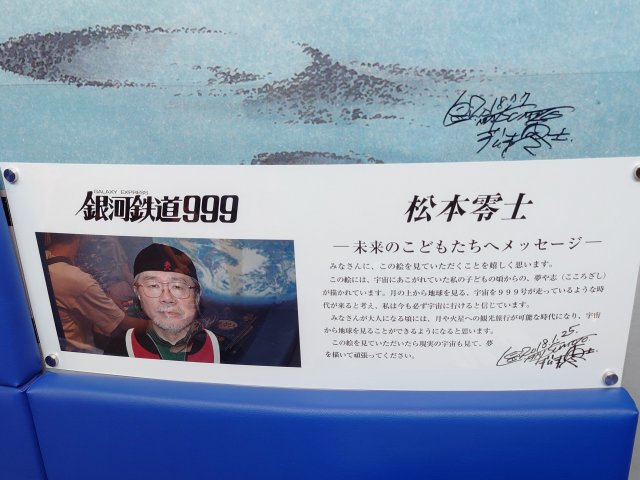 GALAXY EXPRESS
銀河鉄道999
松本零士
―未来のこどもたちへメッセージ―
みなさんに、この絵を見ていただくことを嬉しく思います。
この絵には、宇宙にあこがれていた私の子どもの頃からの、夢や志（こころざし）
が描かれています。月の上から地球を見る、宇宙を９９９号が走っているような時
代が来ると考え、私は今も必ず宇宙に行けると信じています。
みなさんが大人になる頃には、月や火星への観光旅行が可能な時代になり、宇宙
から地球を見ることができるようになると思います。
この絵を見ていただいたら現実の宇宙も見て、夢
を描いて頑張ってください。